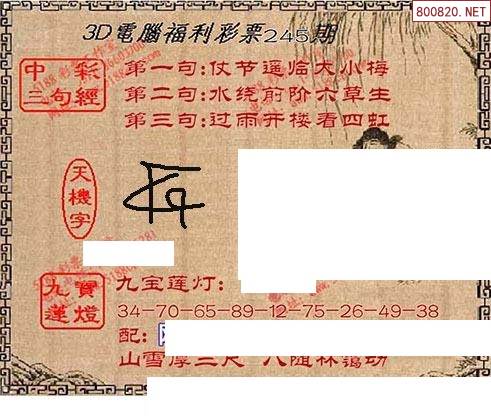 800820.NET
3D電腦福利彩票245期
中彩
三句經
第一句:仗节遥临大小梅
第二句:水绕前阶六草生
第三句:过雨开楼看四虹
天機字
九寶
蓮燈
九宝莲灯:
34-70-65-89-12-75-26-49-38
配:
山雪厚三尺 八随林霭动